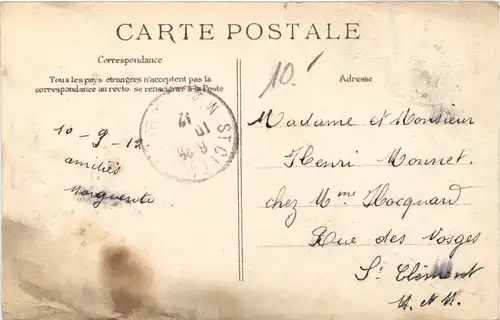 CARTE POSTALE
Correspondance
Tous les pays étrangers n'acceptent pas la
correspondance au recto. se renseigner à la Poste
Adresse
10.
10-9-12
amitiés
Marguerite
ST CL
12
10
Madame et Monsieur
Henri Monnet.
chez Mme Hocquard
Rue des Vosges
St Clément
M. et M.